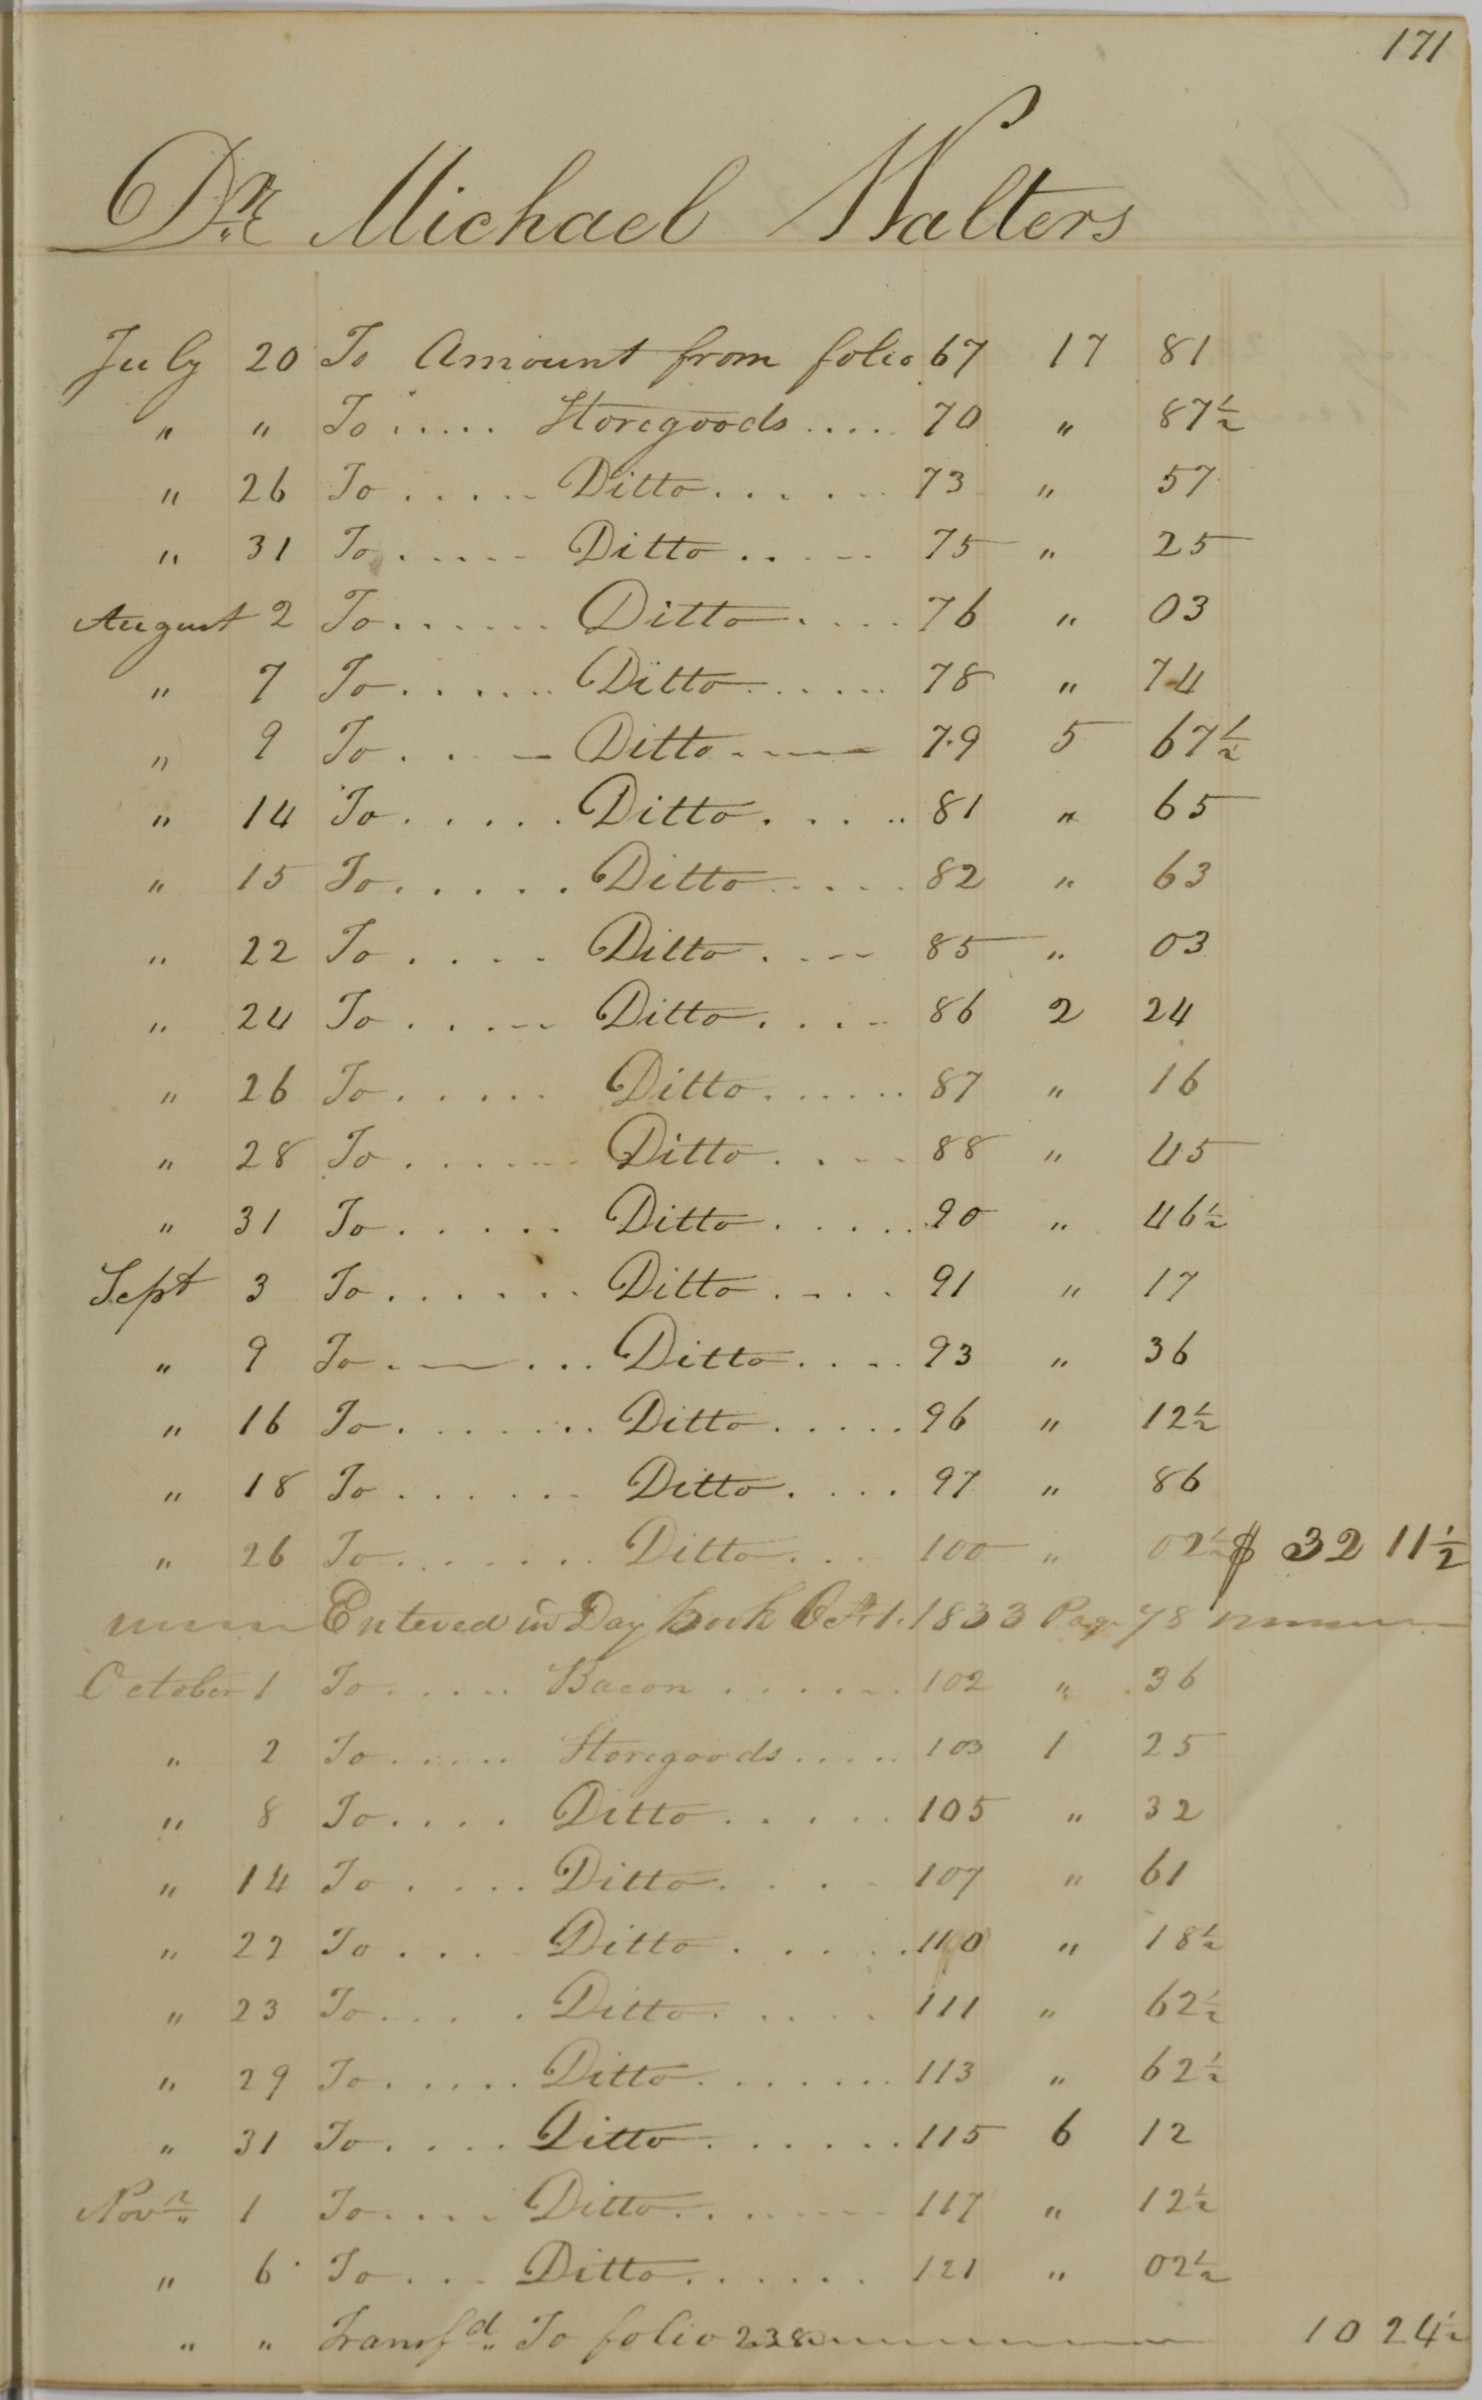 171
Dr. Michael Walters
July 20 To Amount from folio 67 17 81
" " To ..... Storegoods .... 70 " 87½
" 26 To ..... Ditto ...... 73 " 57
" 31 To ..... Ditto ..... 75 " 25
August 2 To ...... Ditto .... 76 " 03
" 7 To ...... Ditto ..... 78 " 74
" 9 To ... Ditto ... 79 5 67½
" 14 To ..... Ditto ..... 81 " 65
" 15 To ..... Ditto .... 82 " 63
" 22 To .... Ditto .... 85 " 03
" 24 To ..... Ditto .... 86 2 24
" 26 To ..... Ditto ...... 87 " 16
" 28 To ...... Ditto .... 88 " 45
" 31 To ..... Ditto ..... 90 " 46½
Sept 3 To ...... Ditto .... 91 " 17
" 9 To ..... Ditto .... 93 " 36
" 16 To ...... Ditto ..... 96 " 12½
" 18 To ...... Ditto .... 97 " 86
" 26 To ...... Ditto ... 100 " 02½ $ 32 11½
Entered in Day book Oct. 1. 1833 Page 78
October 1 To ..... Bacon ...... 102 " 36
" 2 To ..... Storegoods ..... 103 1 25
" 8 To .... Ditto ..... 105 " 32
" 14 To .... Ditto .... 107 " 61
" 22 To .... Ditto ..... 110 " 18½
" 23 To .... Ditto .... 111 " 62½
" 29 To ..... Ditto ....... 113 " 62½
" 31 To .... Ditto ...... 115 6 12
Novr. 1 To .... Ditto ...... 117 " 12½
" 6 To ... Ditto ...... 121 " 02½
" " Transfd. To folio 238 10 24½